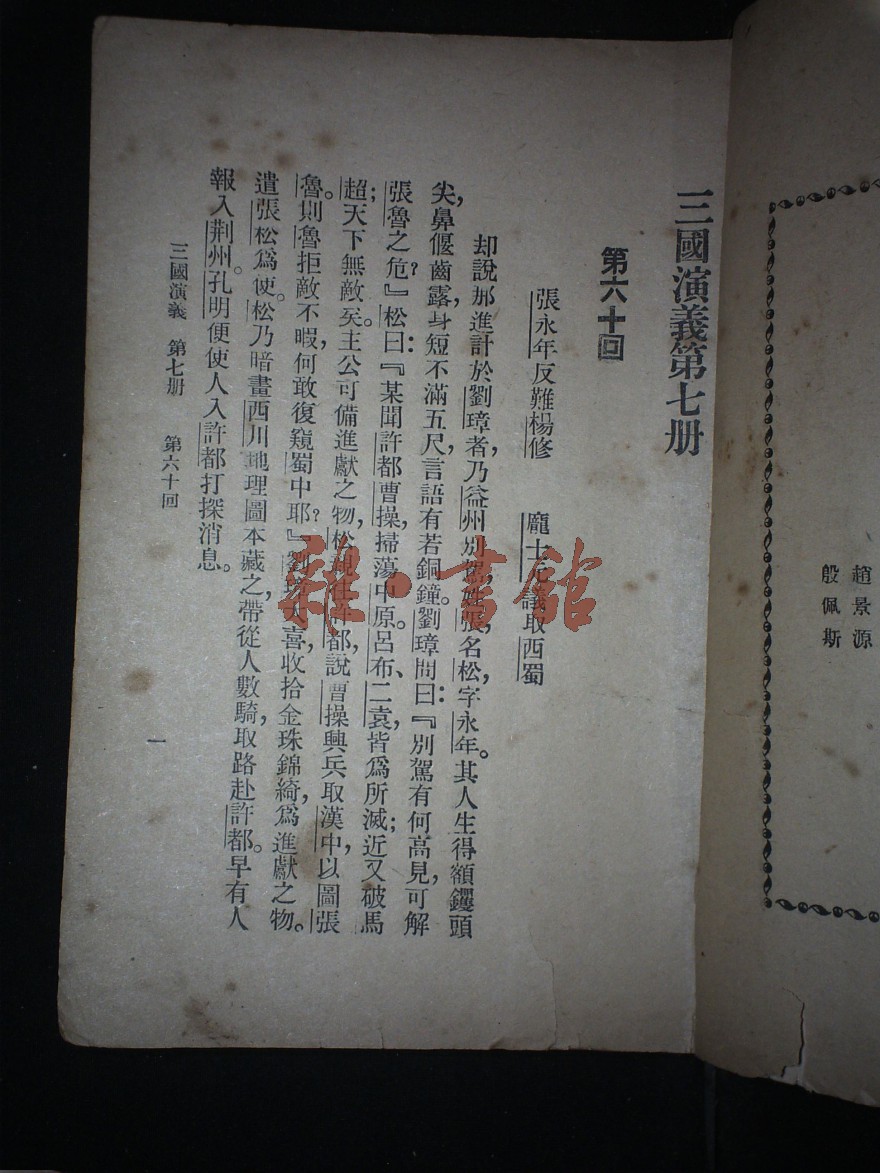 趙景源
殷佩斯
三國演義第七册
第六十回
張永年反難楊修 龐士元議取西蜀
却說那進計於劉璋者，乃益州別駕，姓張，名松，字永年。其人生得額钁頭
尖，鼻偃齒露，身短不滿五尺，言語有若銅鐘。劉璋問曰：『別駕有何高見，可解
張魯之危？』松曰：『某聞許都曹操，掃蕩中原。呂布、二袁，皆爲所滅；近又破馬
超；天下無敵矣。主公可備進獻之物，松親往許都，說曹操興兵取漢中，以圖張
魯。則魯拒敵不暇，何敢復窺蜀中耶？』劉璋大喜，收拾金珠錦綺，爲進獻之物。
遣張松爲使。松乃暗畫西川地理圖本藏之，帶從人數騎，取路赴許都。早有人
報入荆州。孔明便使人入許都打探消息。
三國演義 第七册 第六十回 一
雜·書館